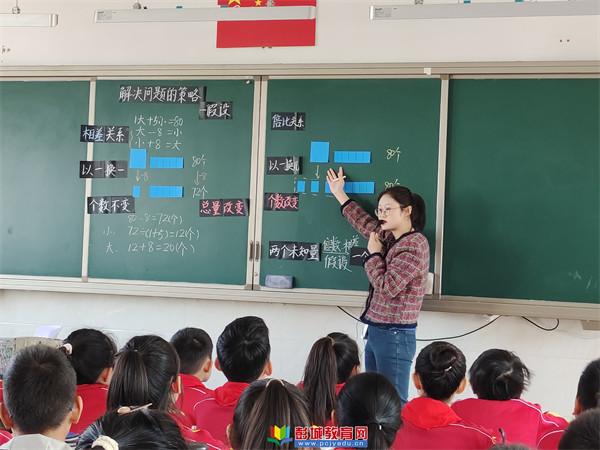 解决问题的策略
—假设
1大+5小=80
大-8=小
小+8=大
相差关系
以一换一
80个
-8
-8
72个
个数不变
总量改变
80-8=72(个)
小: 72÷(1+5)=12(个)
大: 12+8=20(个)
倍比关系
80个
以一换
80个
个数改变
两个未知量
倍数 相差
假设
一个
彭城教育网
www.pcjyedu.cn